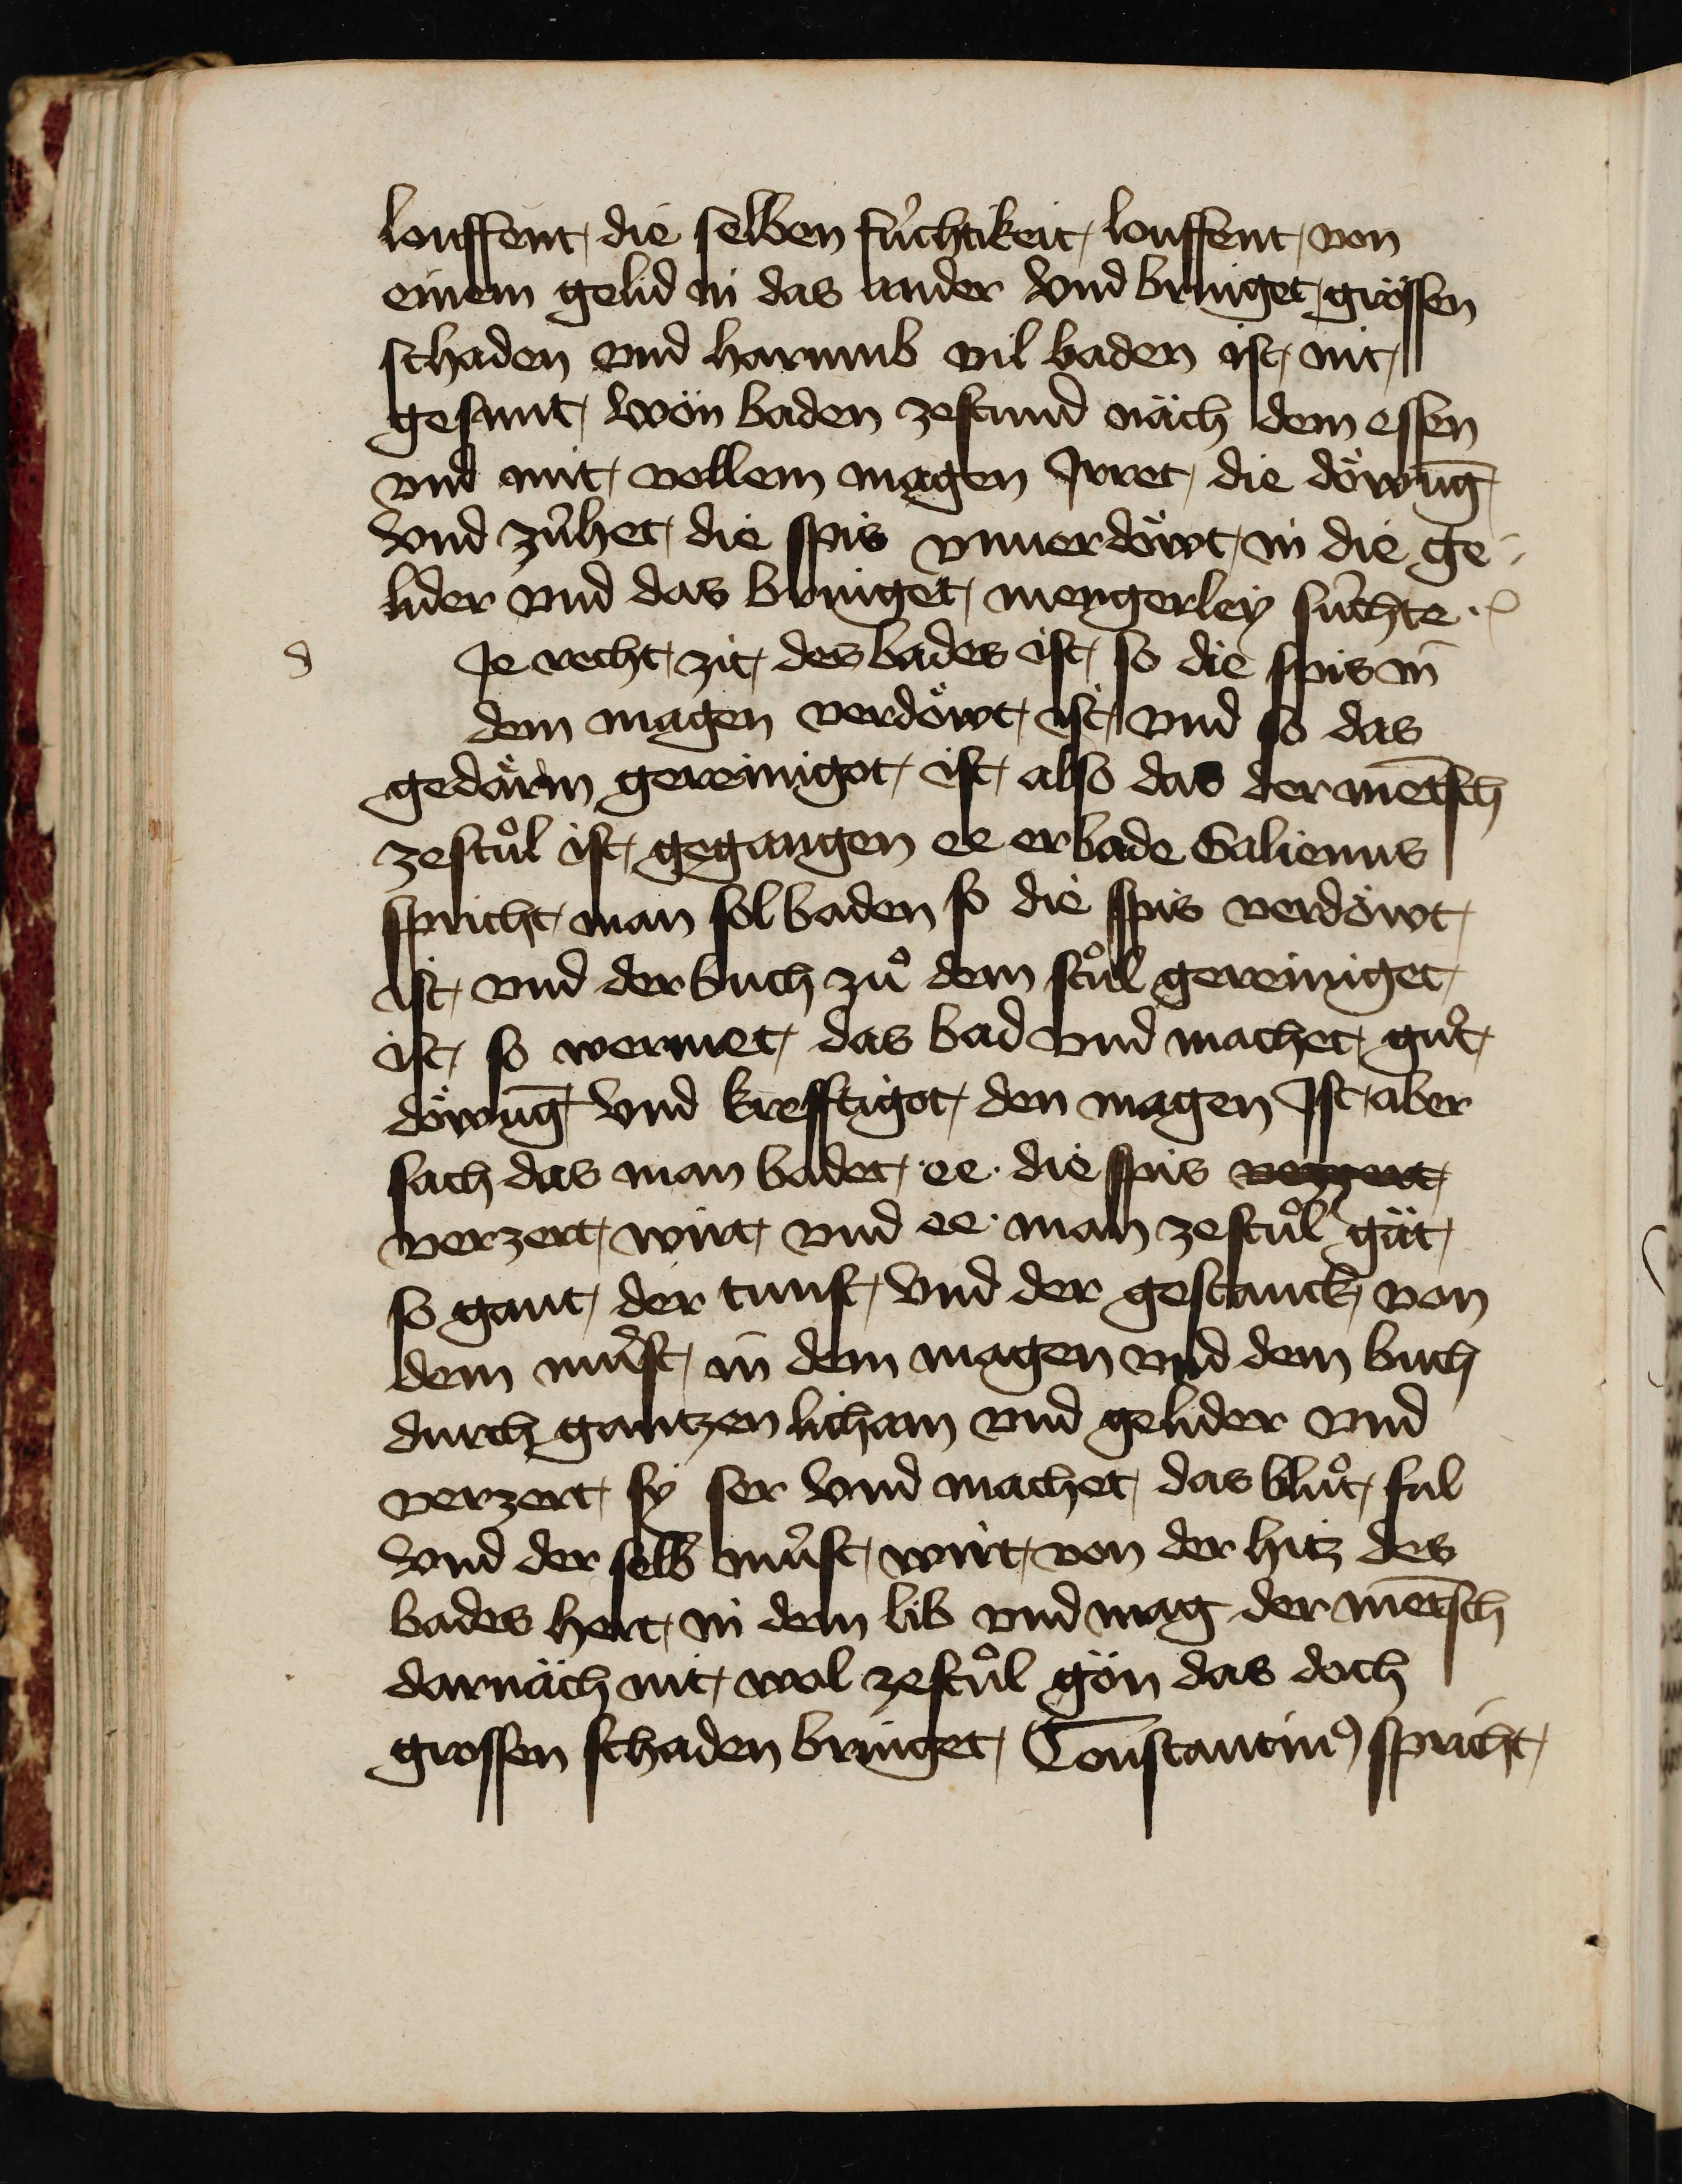 louffent die selben fu̍chtikeit louffent von
einem gelid in das ander vnd bringet grössen
schaden vnd harumb vil baden ist nit
gesunt wön baden zestund näch dem essen
vnd mit vollem magen Jrret die döwūg
vnd zu̍het die spis vnuerdöwt in die ge-
lider vnd das bringet mengerley su̍chte.
d
Je recht zit des bades ist so die spis in
dem magen verdöwt ist vnd so das
gedärm gereiniget ist also das der mētsch
zestůl ist gegangen ee er bade Galienus
spricht man sol baden so die spis verdöwt
ist vnd der buch zů dem stůl gereiniget
ist so wermet das bad vnd machet gůt
döwūg vnd krefftigot den magen Jst aber
sach das man badet ·ee· die spis
verzert wirt vnd ee· man zestůl gät
so gant der tunst vnd der gestanck von
dem mu̍st in dem magen vnd dem buch
durch gantzen licham vnd gelider vnd
verzert sÿ ser vnd machet das blůt ful
vnd der selb mu̍st wirt von der hitz des
bades hert in dem lib vnd mag der mētsch
darnäch nit wol zestůl gön das doch
grossen schaden bringet Constantinꝰ spricht